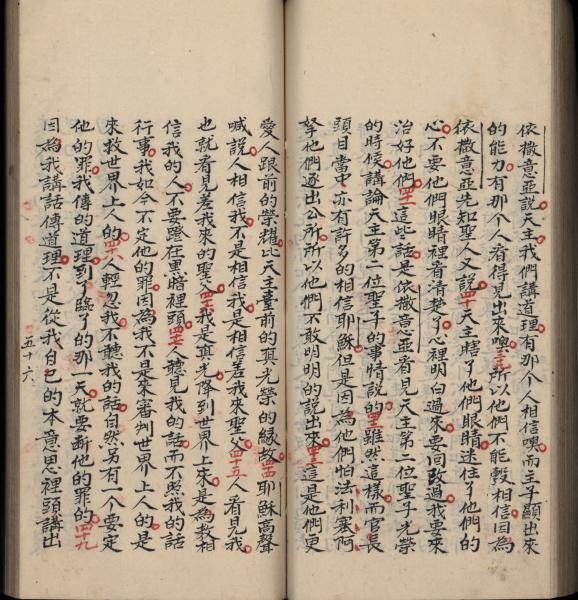 依撒意亞說天主我們講道理有那个人相信嘆而主手顯出來
的能力有那个人看得見出來嘆三九所以他們不能彀相信因為
依撒意亞先知聖人又說四十天主瞎了他們眼睛迷住了他們的
心不要他們眼睛裡看清楚了心裡明白過來要回改過我要來
治好他們四一這些話是依撒意亞看見天主第二位聖子光榮
的時候講論天主第二位聖子的事情說的四二雖然這樣而官長
頭目當中亦有許多的相信耶穌但是因為他們怕法利塞阿
拏他們逐出公所所以他們不敢明明的說出來四三這是他們更
愛人跟前的榮耀比天主臺前的真光榮的緣故四四耶穌高聲
喊說人相信我不是相信我是相信差我來聖父四五人看見我
也就看見差我來的聖父四六我是真光降到世界上來是為教相
信我的人不要蹬在黑暗裡頭四七人聽見我的話而不照我的話
行事我如今不定他的罪因為我不是來審判世界上人的是
來救世界上人的四八人輕忽我不聽我的話自然另有一个要定
他的罪我傳的道理到了臨了的那一天就要斷他的罪的四九
因為我講話傳道理不是從我自己的本意思裡頭講出
五十六